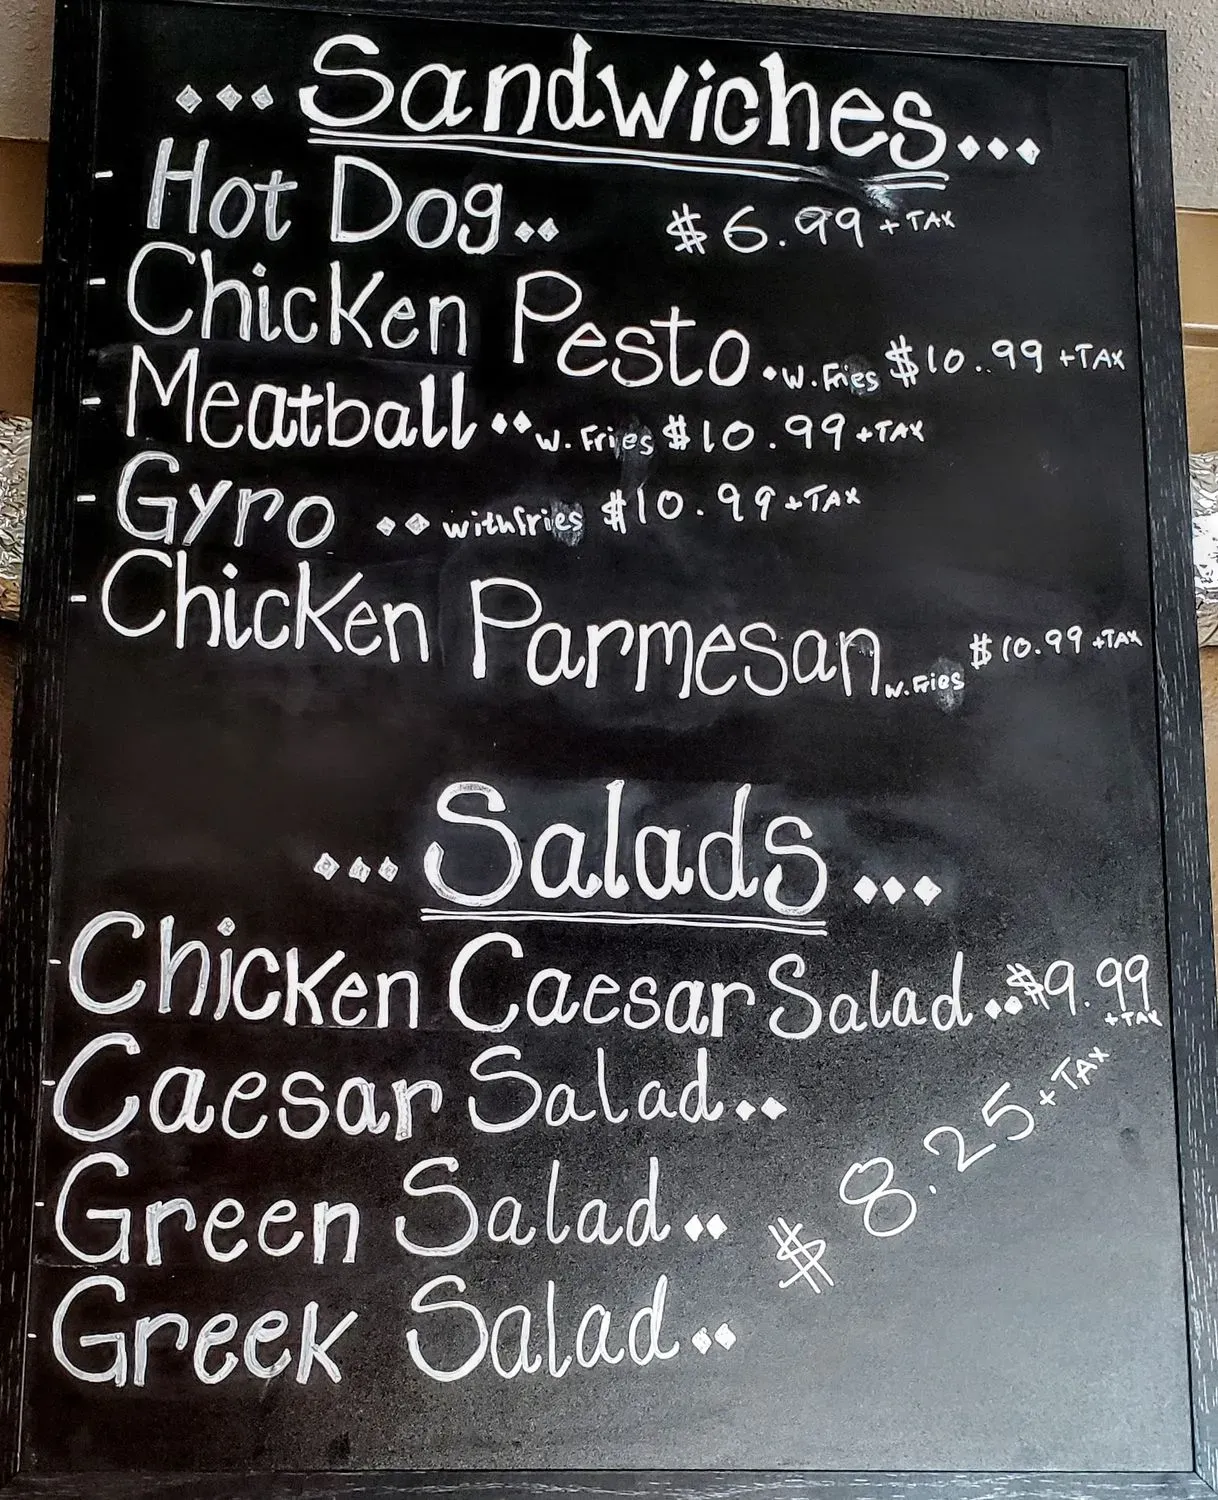 ... Sandwiches...
- Hot Dog.. $6.99 + TAX
- Chicken Pesto. w. Fries $10.99 +TAX
- Meatball.. w. Fries $10.99 +TAX
- Gyro .. withfries $10.99 +TAX
- Chicken Parmesan w. Fries $10.99 +TAX
... Salads ...
- Chicken Caesar Salad.. $9.99 +TAX
- Caesar Salad..
- Green Salad.. $8.25 +TAX
- Greek Salad..